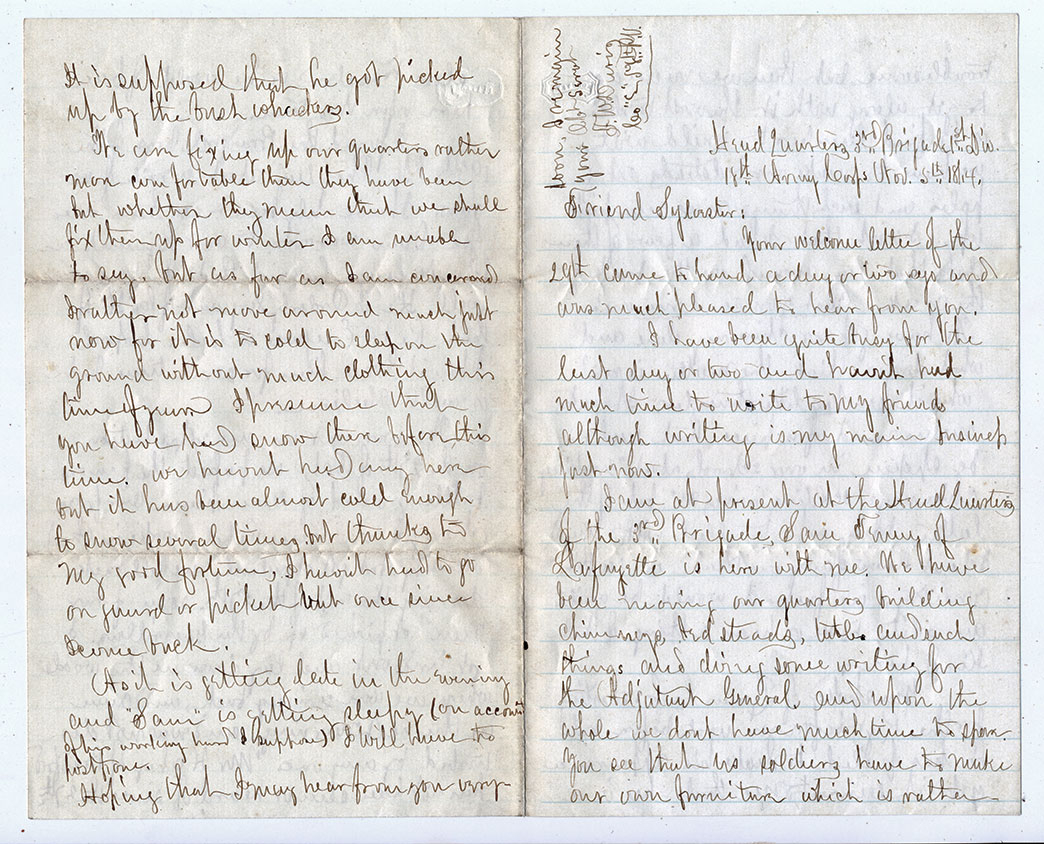 Head Quarters 3rd Brigade 1st Div.
18th Army Corps Nov. 5th 1864.
Friend Sylvester:
Your welcome letter of the
29th came to hand a day or two ago and
was much pleased to hear from you.
I have been quite busy for the
last day or two and havent had
much time to write to my friends
although writing is my main business
just now.
I am at present at the Head Quarters
of the 3rd Brigade, Sam of
Lafayette is here with me. We have
been moving our quarters building
chimneys, bedsteads, table and such
things and doing some writing for
the Adjutant General, and upon the
whole we dont have much time to spare
You see that us soldiers have to make
our own furniture which is rather
It is supposed that he got picked
up by the bush whackers.
We are fixing up our quarters rather
more comfortable than they have been
but whether they mean that we shall
fix them up for winter I am unable
to say. but as far as I am concerned
I rather not move around much just
now for it is to cold to sleep on the
ground without much clothing this
time of year I presume that
you have had snow there before this
time. we havent had any here
but it has been almost cold enough
to snow several times, but thanks to
my good fortune, I havent had to go
on guard or picket but once since
I came back.
As it is getting late in the evening
and Sam is getting sleepy (on account
of his working hard I suppose) I will have to
postpone.
Hoping that I may hear from you very
soon, I remain
Your Obt Servt
Co "C"